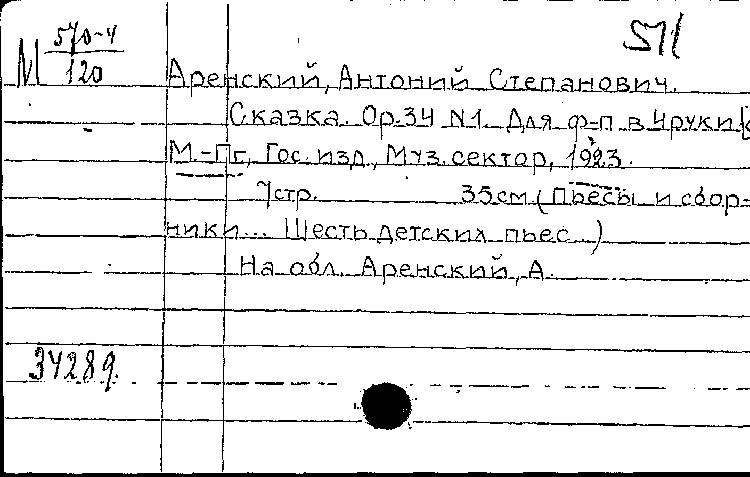 М 570-4
120
511
Аренский, Антоний Степанович.
Сказка. Op.34 N1. Для ф-п в 4руки
М.-Пг, Гос. изд., Муз. сектор, 1923.
7стр. 35см (Пьесы и сбор-
ники... Шесть детских пьес.)
На обл. Аренский, А.
34289.